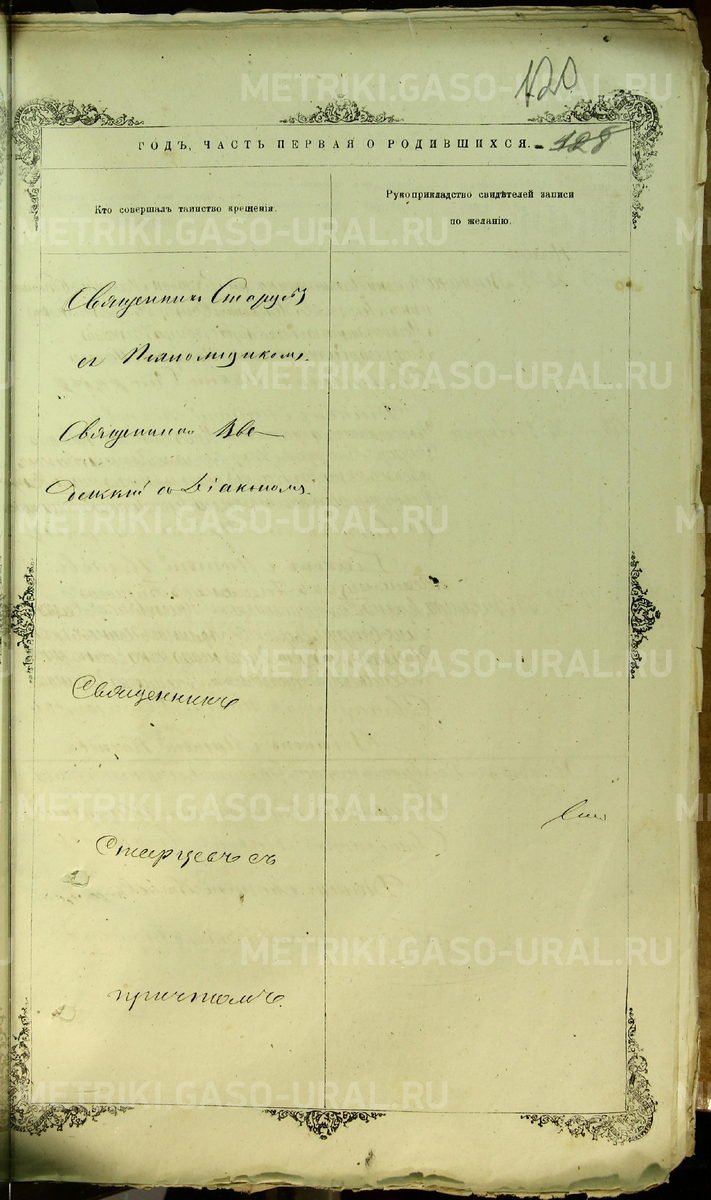 120
ГОДЪ, ЧАСТЬ ПЕРВАЯ О РОДИВШИХСЯ. 128
Кто совершалъ таинство крещенія.
Рукоприкладство свидѣтелей записи
по желанію.
Священникъ
съ
Священникъ Вве
денскій съ Діакономъ.
Священникъ
Старцевъ съ
причтомъ.
METRIKI.GASO-URAL.RU